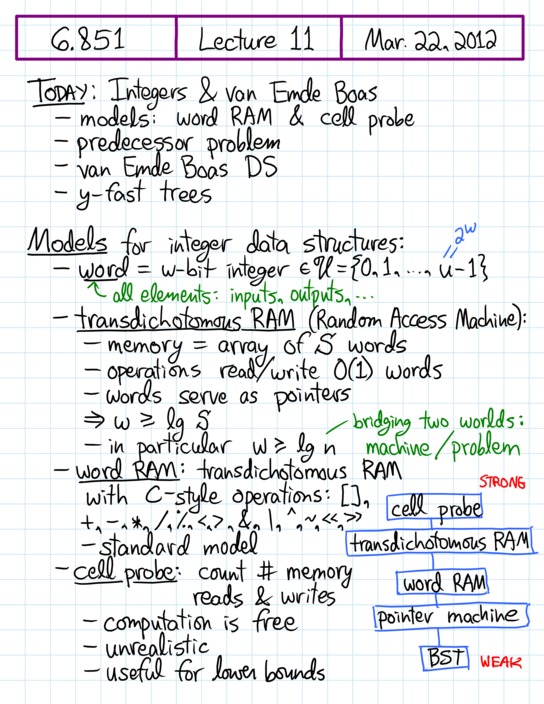 6.851 Lecture 11 Mar. 22, 2012
TODAY: Integers & van Emde Boas
– models: word RAM & cell probe
– predecessor problem
– van Emde Boas DS
– y-fast trees
2^w
Models for integer data structures:
– word = w-bit integer ∈ U = {0, 1, ..., u-1}
all elements: inputs, outputs, ...
– transdichotomous RAM (Random Access Machine):
– memory = array of S words
– operations read/write O(1) words
– words serve as pointers
⇒ w ≥ lg S
– in particular w ≥ lg n
bridging two worlds:
machine/problem
– word RAM: transdichotomous RAM
with C-style operations: [],
+, -, *, /, %, <, >, &, |, ^, ~, <<, >>
– standard model
– cell probe: count # memory
reads & writes
– computation is free
– unrealistic
– useful for lower bounds
STRONG
cell probe
transdichotomous RAM
word RAM
pointer machine
BST WEAK